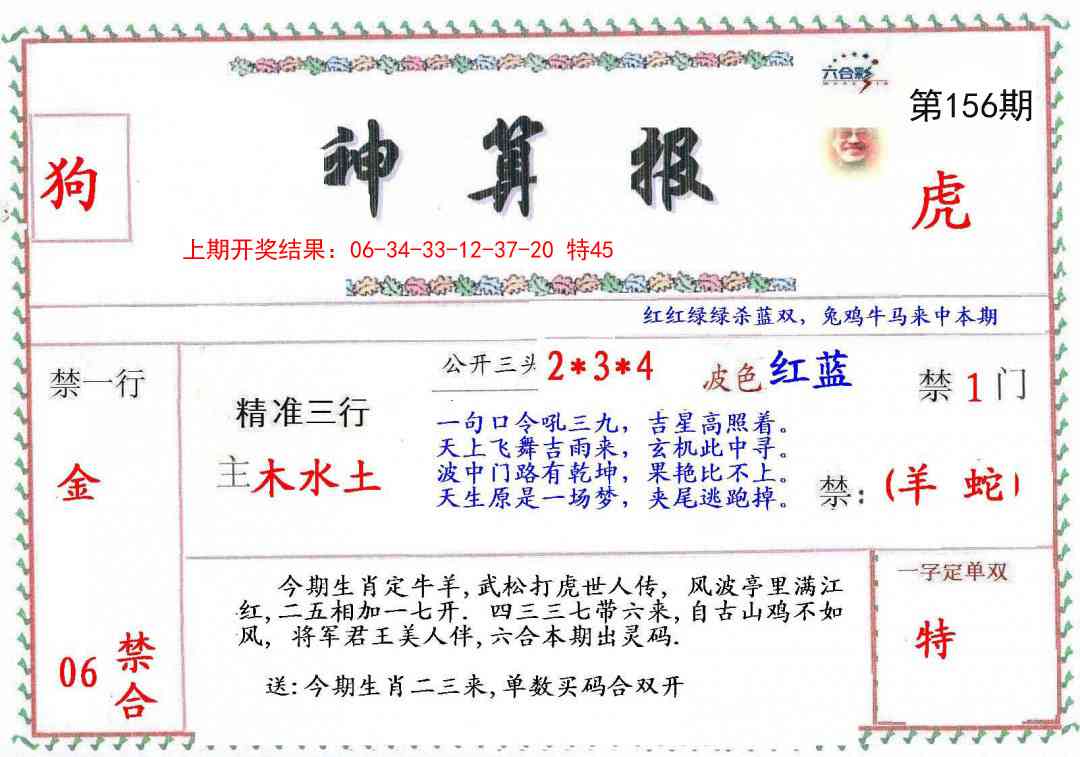 六合彩
第156期
狗
神算报
虎
上期开奖结果：06-34-33-12-37-20 特45
红红绿绿杀蓝双，兔鸡牛马来中本期
禁一行
金
06
禁合
精准三行
主木水土
公开三头 2*3*4
波色 红蓝
一句口令吼三九，吉星高照着。
天上飞舞吉雨来，玄机此中寻。
波中门路有乾坤，果艳比不上。
天生原是一场梦，夹尾逃跑掉。
禁 1 门
禁：(羊 蛇)
今期生肖定牛羊,武松打虎世人传，风波亭里满江
红,二五相加一七开．四三三七带六来,自古山鸡不如
风，将军君王美人伴,六合本期出灵码.
送:今期生肖二三来,单数买码合双开
一字定单双
特